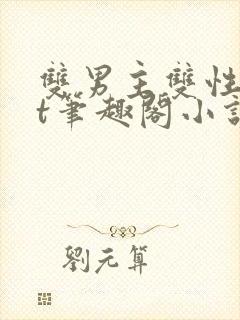 雙男主雙性
t筆趣閣小說
劉元算